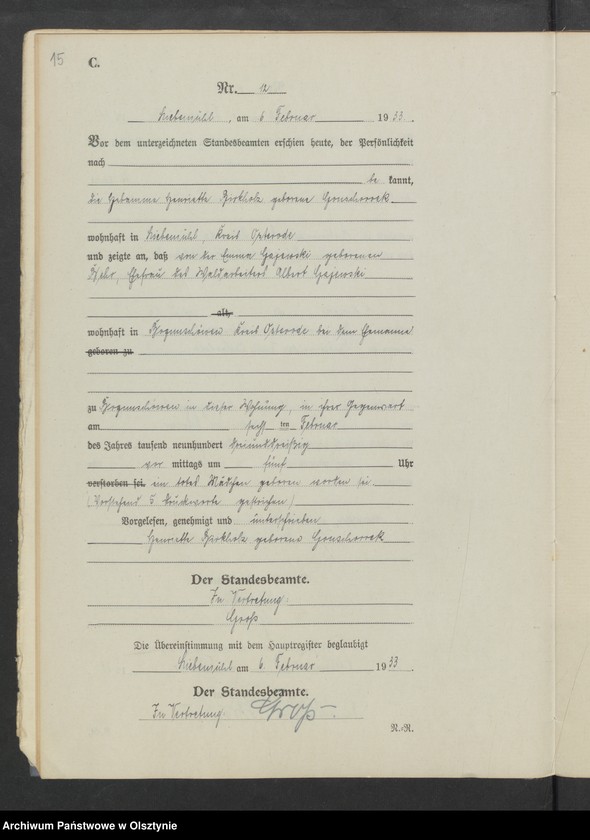 15
C.
Nr. 2
Liebemühl, am 6. Februar 1933.
Vor dem unterzeichneten Standesbeamten erschien heute, der Persönlichkeit
nach
be kannt,
die Hebamme Henriette Birkholz geborene Gonschorrek
wohnhaft in Liebemühl, Kreis Osterode
und zeigte an, daß von der Emma Gajewski geborenen
Ehefrau des Waldarbeiters Albert Gajewski
alt,
wohnhaft in Kreis Osterode bei dem Ehemanne
geboren zu
zu in dieser Wohnung, in ihrer Gegenwart
am sechs ten Februar
des Jahres tausend neunhundert dreiunddreißig
vor mittags um fünf Uhr
verstorben sei. ein totes Mädchen geboren worden sei
(Vorstehend 5 Druckworte gestrichen)
Vorgelesen, genehmigt und unterschrieben
Henriette Birkholz geborene Gonschorrek
Der Standesbeamte.
In Vertretung:
Groß
Die Übereinstimmung mit dem Hauptregister beglaubigt
Liebemühl am 6. Februar 1933.
Der Standesbeamte.
In Vertretung: Groß
R.-R.
Archiwum Państwowe w Olsztynie